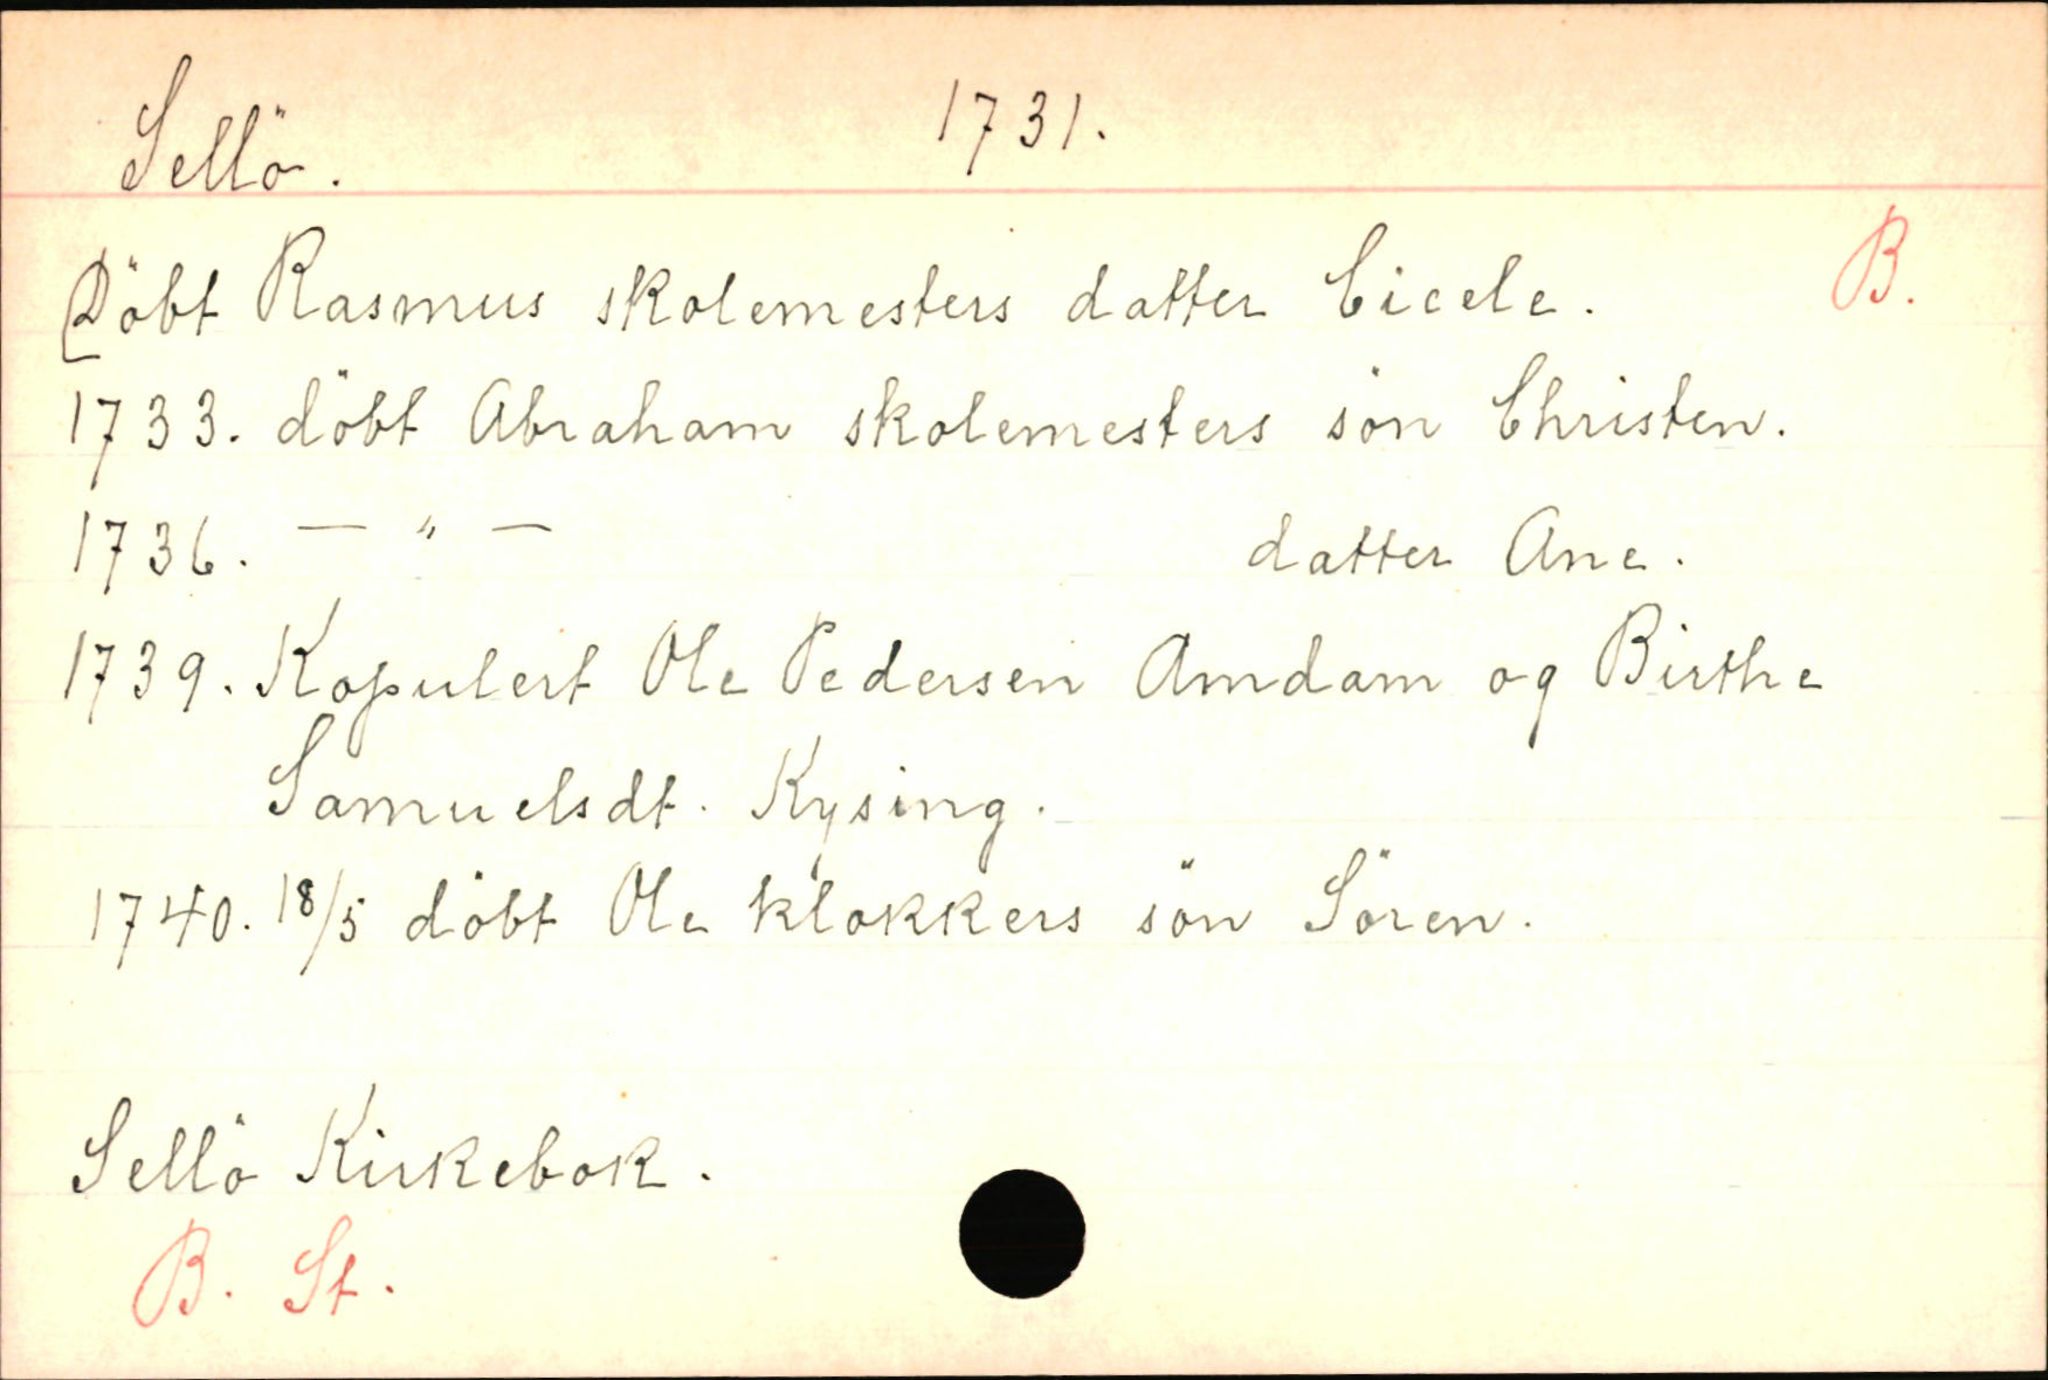 Sellö. 1731.
Döbt Rasmus skolemesters datter Cicele. B.
1733. döbt Abraham skolemesters sön Christen.
1736. — " — datter Ane.
1739. Kopulert Ole Pedersen Amdam og Birthe
Samuelsdt. Kysing.
1740. 18/5 döbt Ole klokkers sön Sören.
Sellö Kirkebok.
B. St.